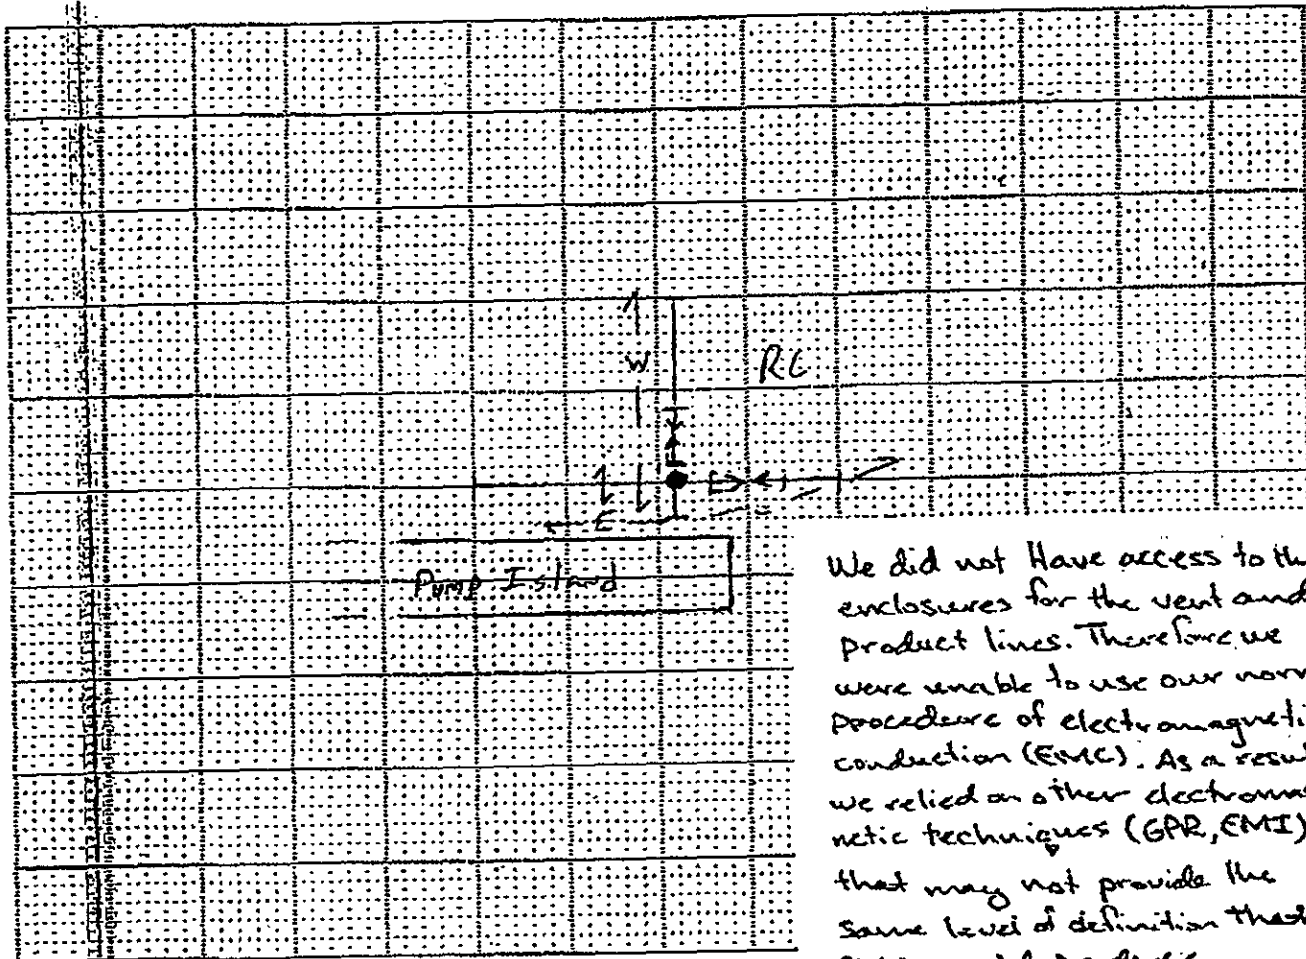 W
E
Pump Island
We did not Have access to the
enclosures for the vent and
product lines. Therefore we
were unable to use our norm
procedure of electromagneti
conduction (EMC). As a resu
we relied on other electromag
netic techniques (GPR, EMI)
that may not provide the
same level of definition that